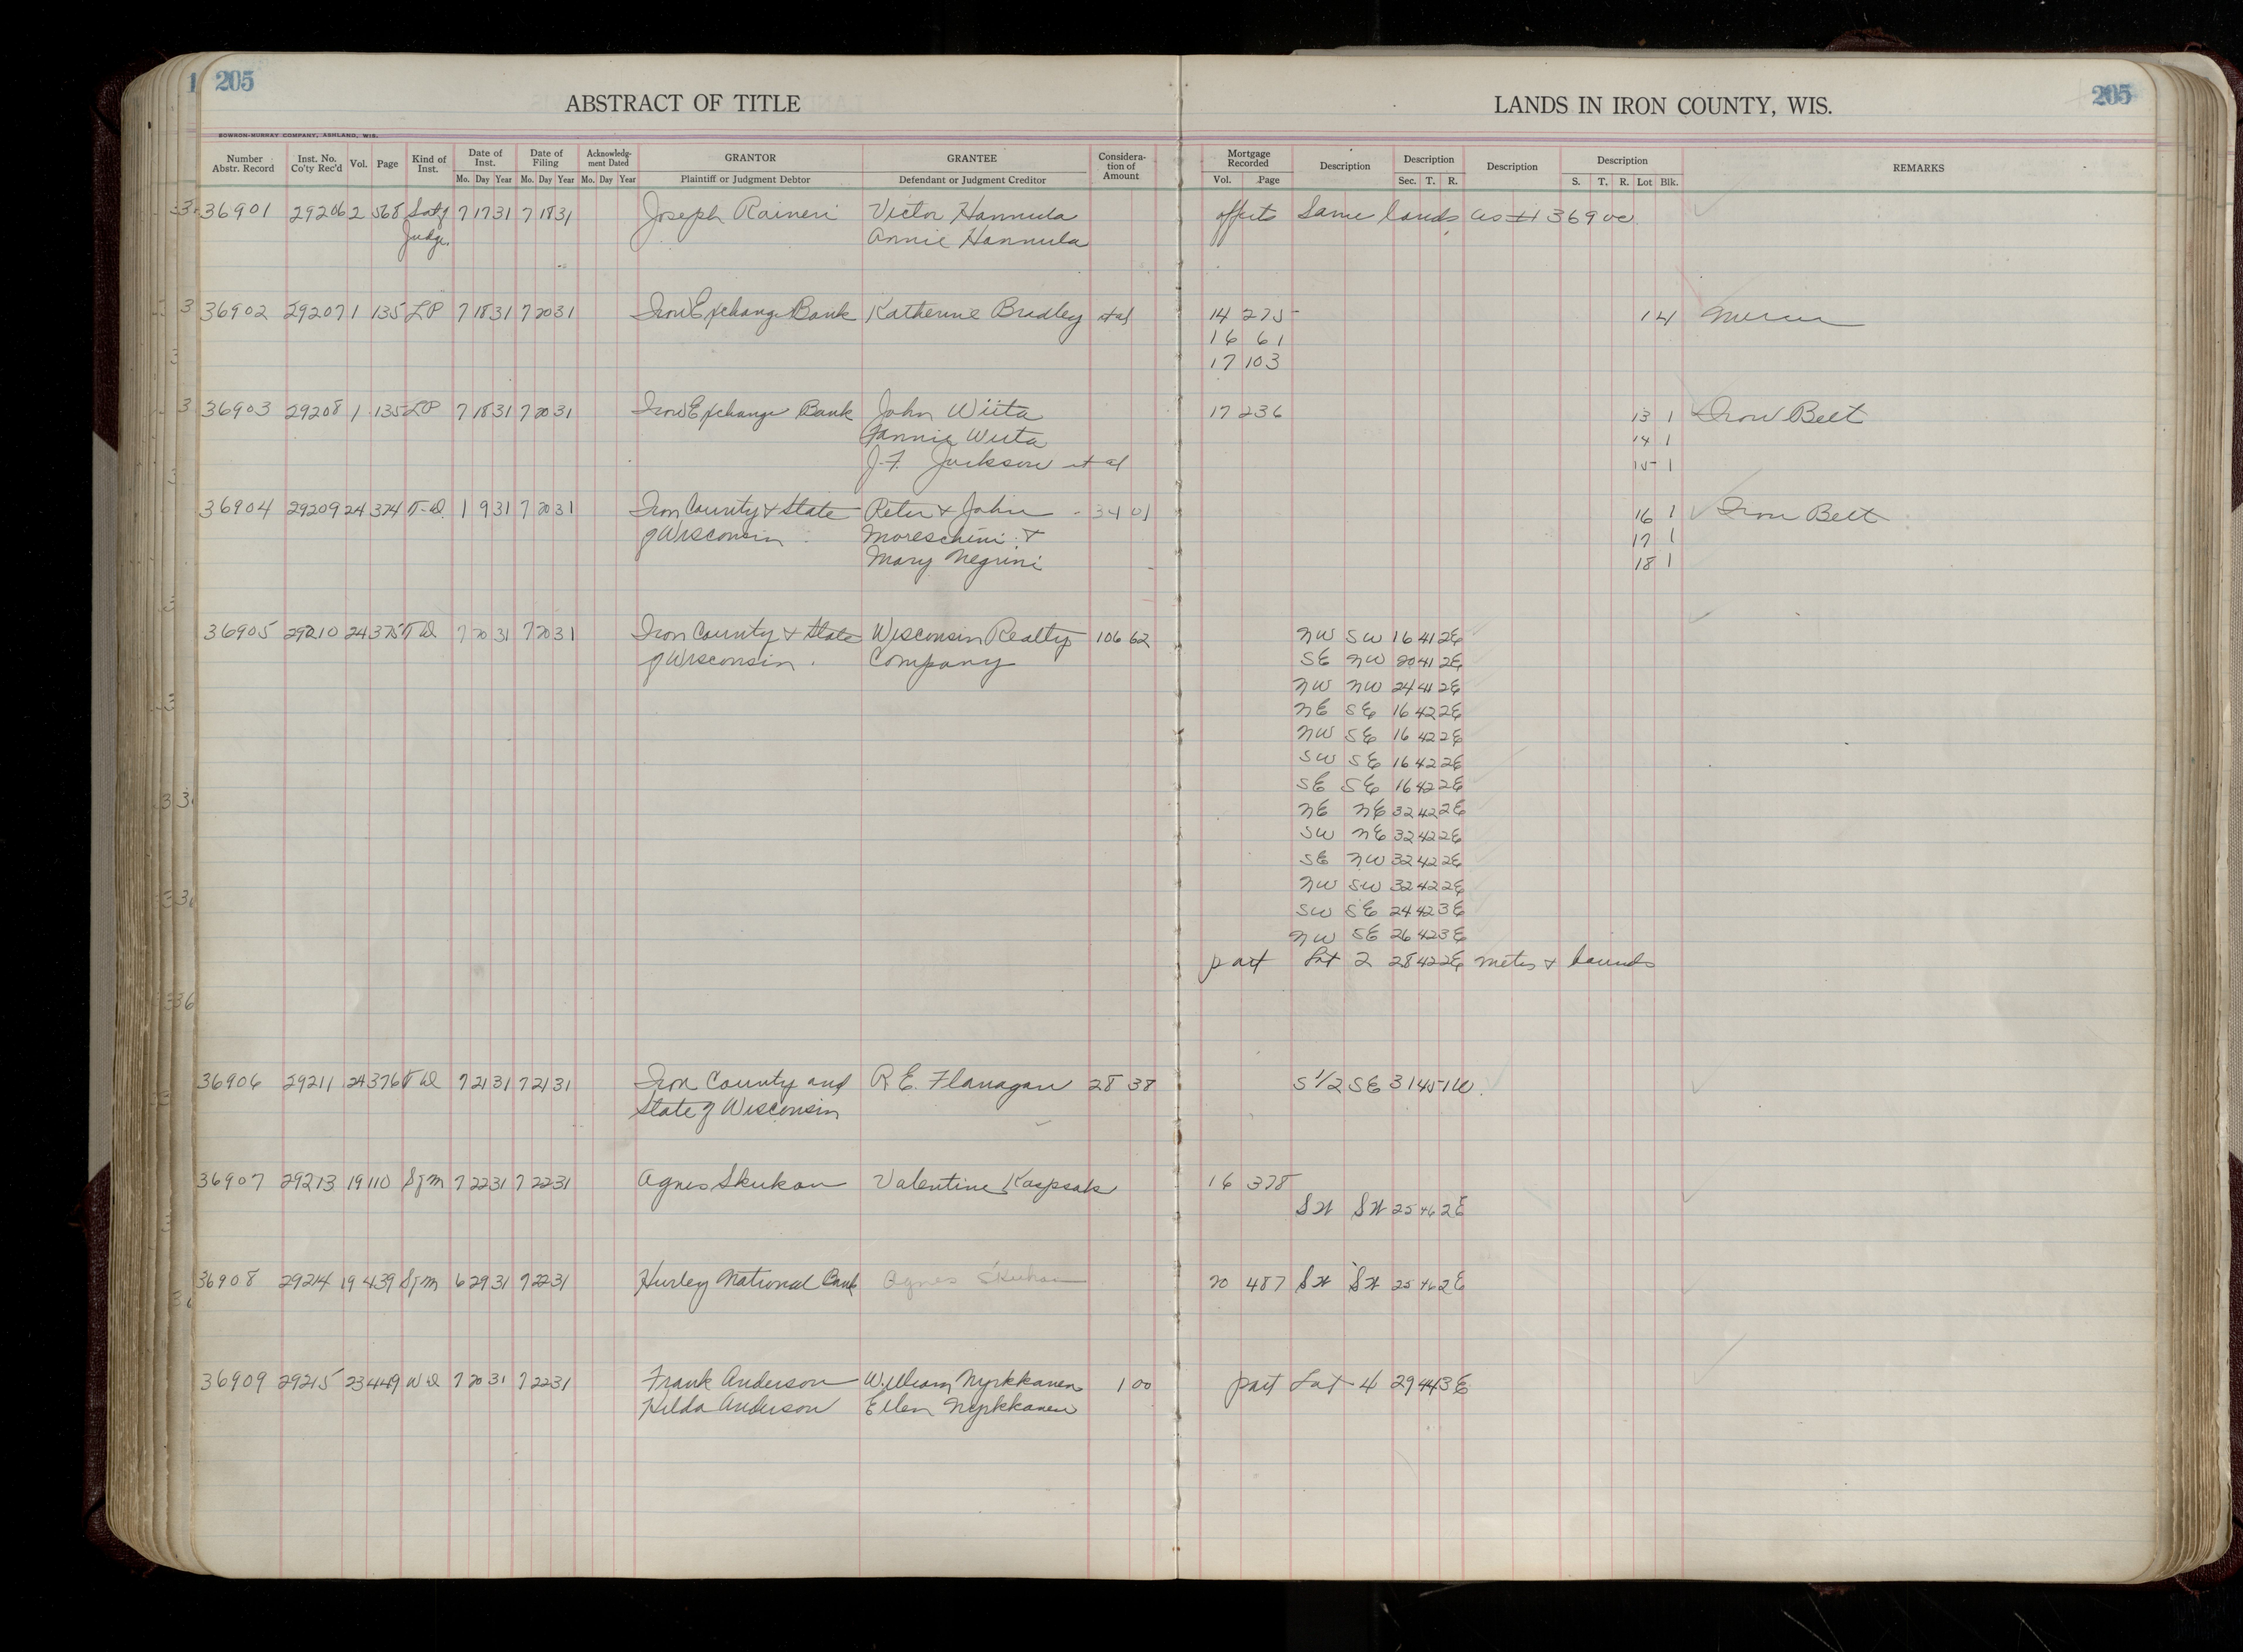 205
ABSTRACT OF TITLE
LANDS IN IRON COUNTY, WIS.
205
BOWRON-MURRAY COMPANY, ASHLAND, WIS.
Number Abstr. Record Inst. No. Co'ty Rec'd Vol. Page Kind of Inst. Date of Inst. Date of Filing Acknowledg-ment Dated GRANTOR GRANTEE Considera-tion of Amount Mortgage Recorded Description Description Description Description REMARKS
Mo. Day Year Mo. Day Year Mo. Day Year Plaintiff or Judgment Debtor Defendant or Judgment Creditor Vol. Page Sec. T. R. S. T. R. Lot Blk.
36901 29206 2 568 Satf 7 17 31 7 18 31 Joseph Raineri Victor Hannula same lands as # 36900
Judge. Annie Hannula
36902 29207 1 135 LP 7 18 31 7 20 31 Iron Exchange Bank Katherine Bradley et al 14 275 14 Mercer
16 61
17 103
36903 29208 1 135 LP 7 18 31 7 20 31 Iron Exchange Bank John Wiita 17 236 13 1 Iron Belt
Fannie Wiita 14 1
J.F. Jackson et al 15 1
36904 29209 24 374 T-D. 1 9 31 7 20 31 Iron County & State Peter & John 34 01 16 1 Iron Belt
of Wisconsin Moreschini & 17 1
Mary Negrini 18 1
36905 29210 24 375 T D 7 20 31 7 20 31 Iron County & State Wisconsin Realty 106 62 NW SW 16 41 2E
of Wisconsin. Company SE NW 20 41 2E
NW NW 24 41 2E
NE SE 16 42 2E
NW SE 16 42 2E
SW SE 16 42 2E
SE SE 16 42 2E
NE NE 32 42 2E
SW NE 32 42 2E
SE NW 32 42 2E
NW SW 32 42 2E
SW SE 24 42 3E
NW SE 26 42 3E
part Lot 2 28 42 2E metes & bounds
36906 29211 24 376 T D 7 21 31 7 21 31 Iron County and R.E. Flanagan 28 38 S 1/2 SE 31 45 1W.
State of Wisconsin
36907 29213 19 110 Sfm 7 22 31 7 22 31 Agnes Skukan Valentine Kaspsak 16 378
25 46 2E
36908 29214 19 439 Sfm 6 29 31 7 22 31 Hurley National Bank Agnes Skukan 20 487 25 46 2E
36909 29215 23 449 W D 7 20 31 7 22 31 Frank Anderson William Nyrkkanen 1 00 part Lot 4 29 44 3E
Hilda Anderson Ellen Nyrkkanen